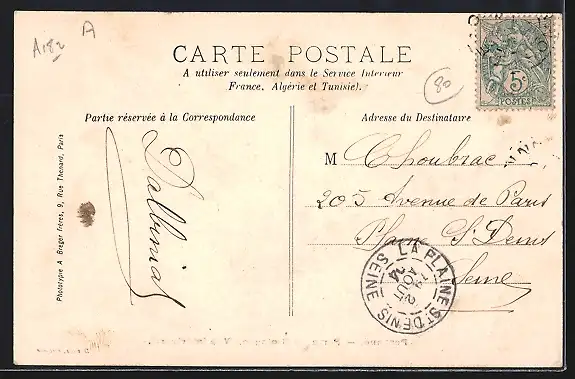 A
CARTE POSTALE
A utiliser seulement dans le Service Interieur
France, Algérie et Tunisie).
80
5c
POSTES
Partie réservée à la Correspondance
Adresse du Destinataire
M Choubrac
205 Avenue de Paris
Plaine St Denis
Seine
LA PLAINE ST DENIS
SEINE
AOUT
Phototypie A Breger frères, 9, Rue Thenard, Paris